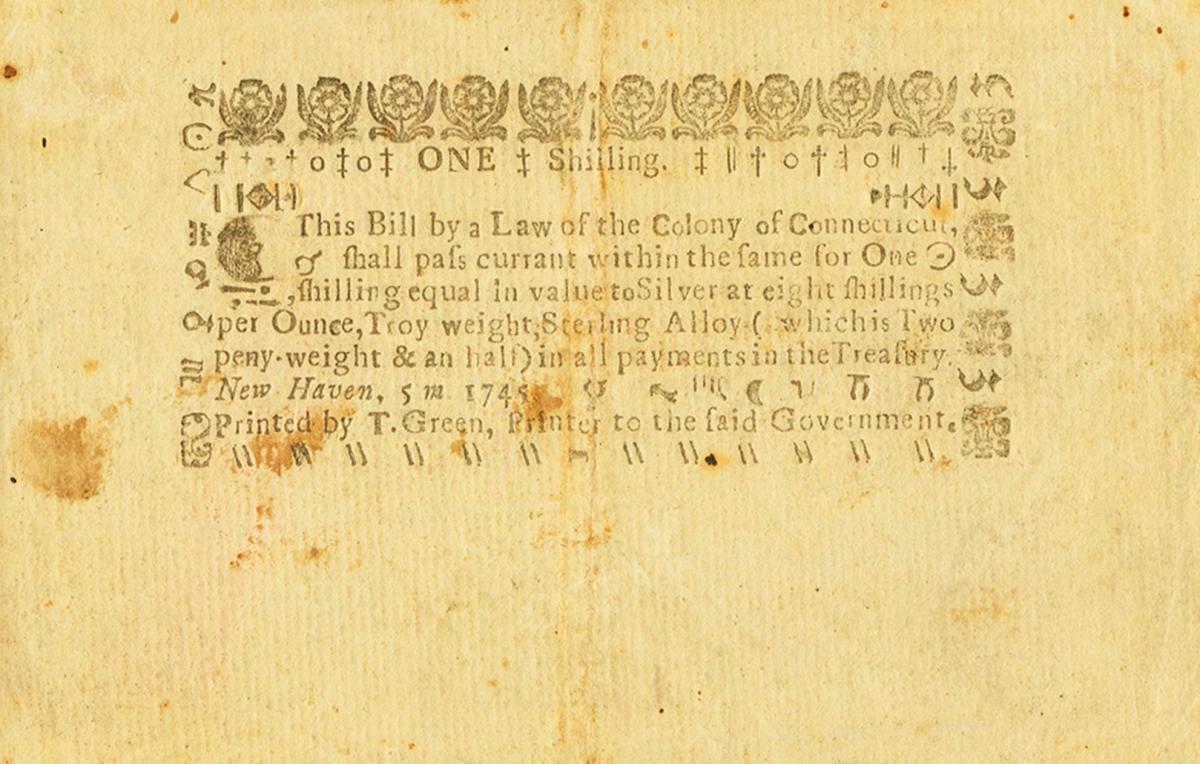 ††††o‡o‡ ONE ‡ Shilling. ‡ ‖ † o † ‡ o ‖ † ‡
This Bill by a Law of the Colony of Connecticut,
ſhall paſs currant within the ſame for One
,ſhilling equal in value to Silver at eight ſhillings
per Ounce, Troy weight, Sterling Alloy ( which is Two
peny-weight & an half) in all payments in the Treaſury.
New Haven, 5 m 1745
Printed by T. Green, Printer to the ſaid Government.